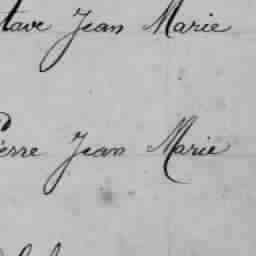 tave Jean Marie
ierre Jean Marie